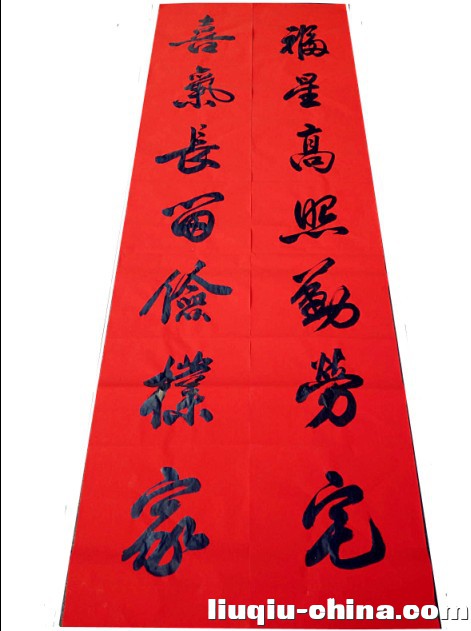 福星高照勤勞宅
喜氣長留儉樸家
liuqiu-china.com